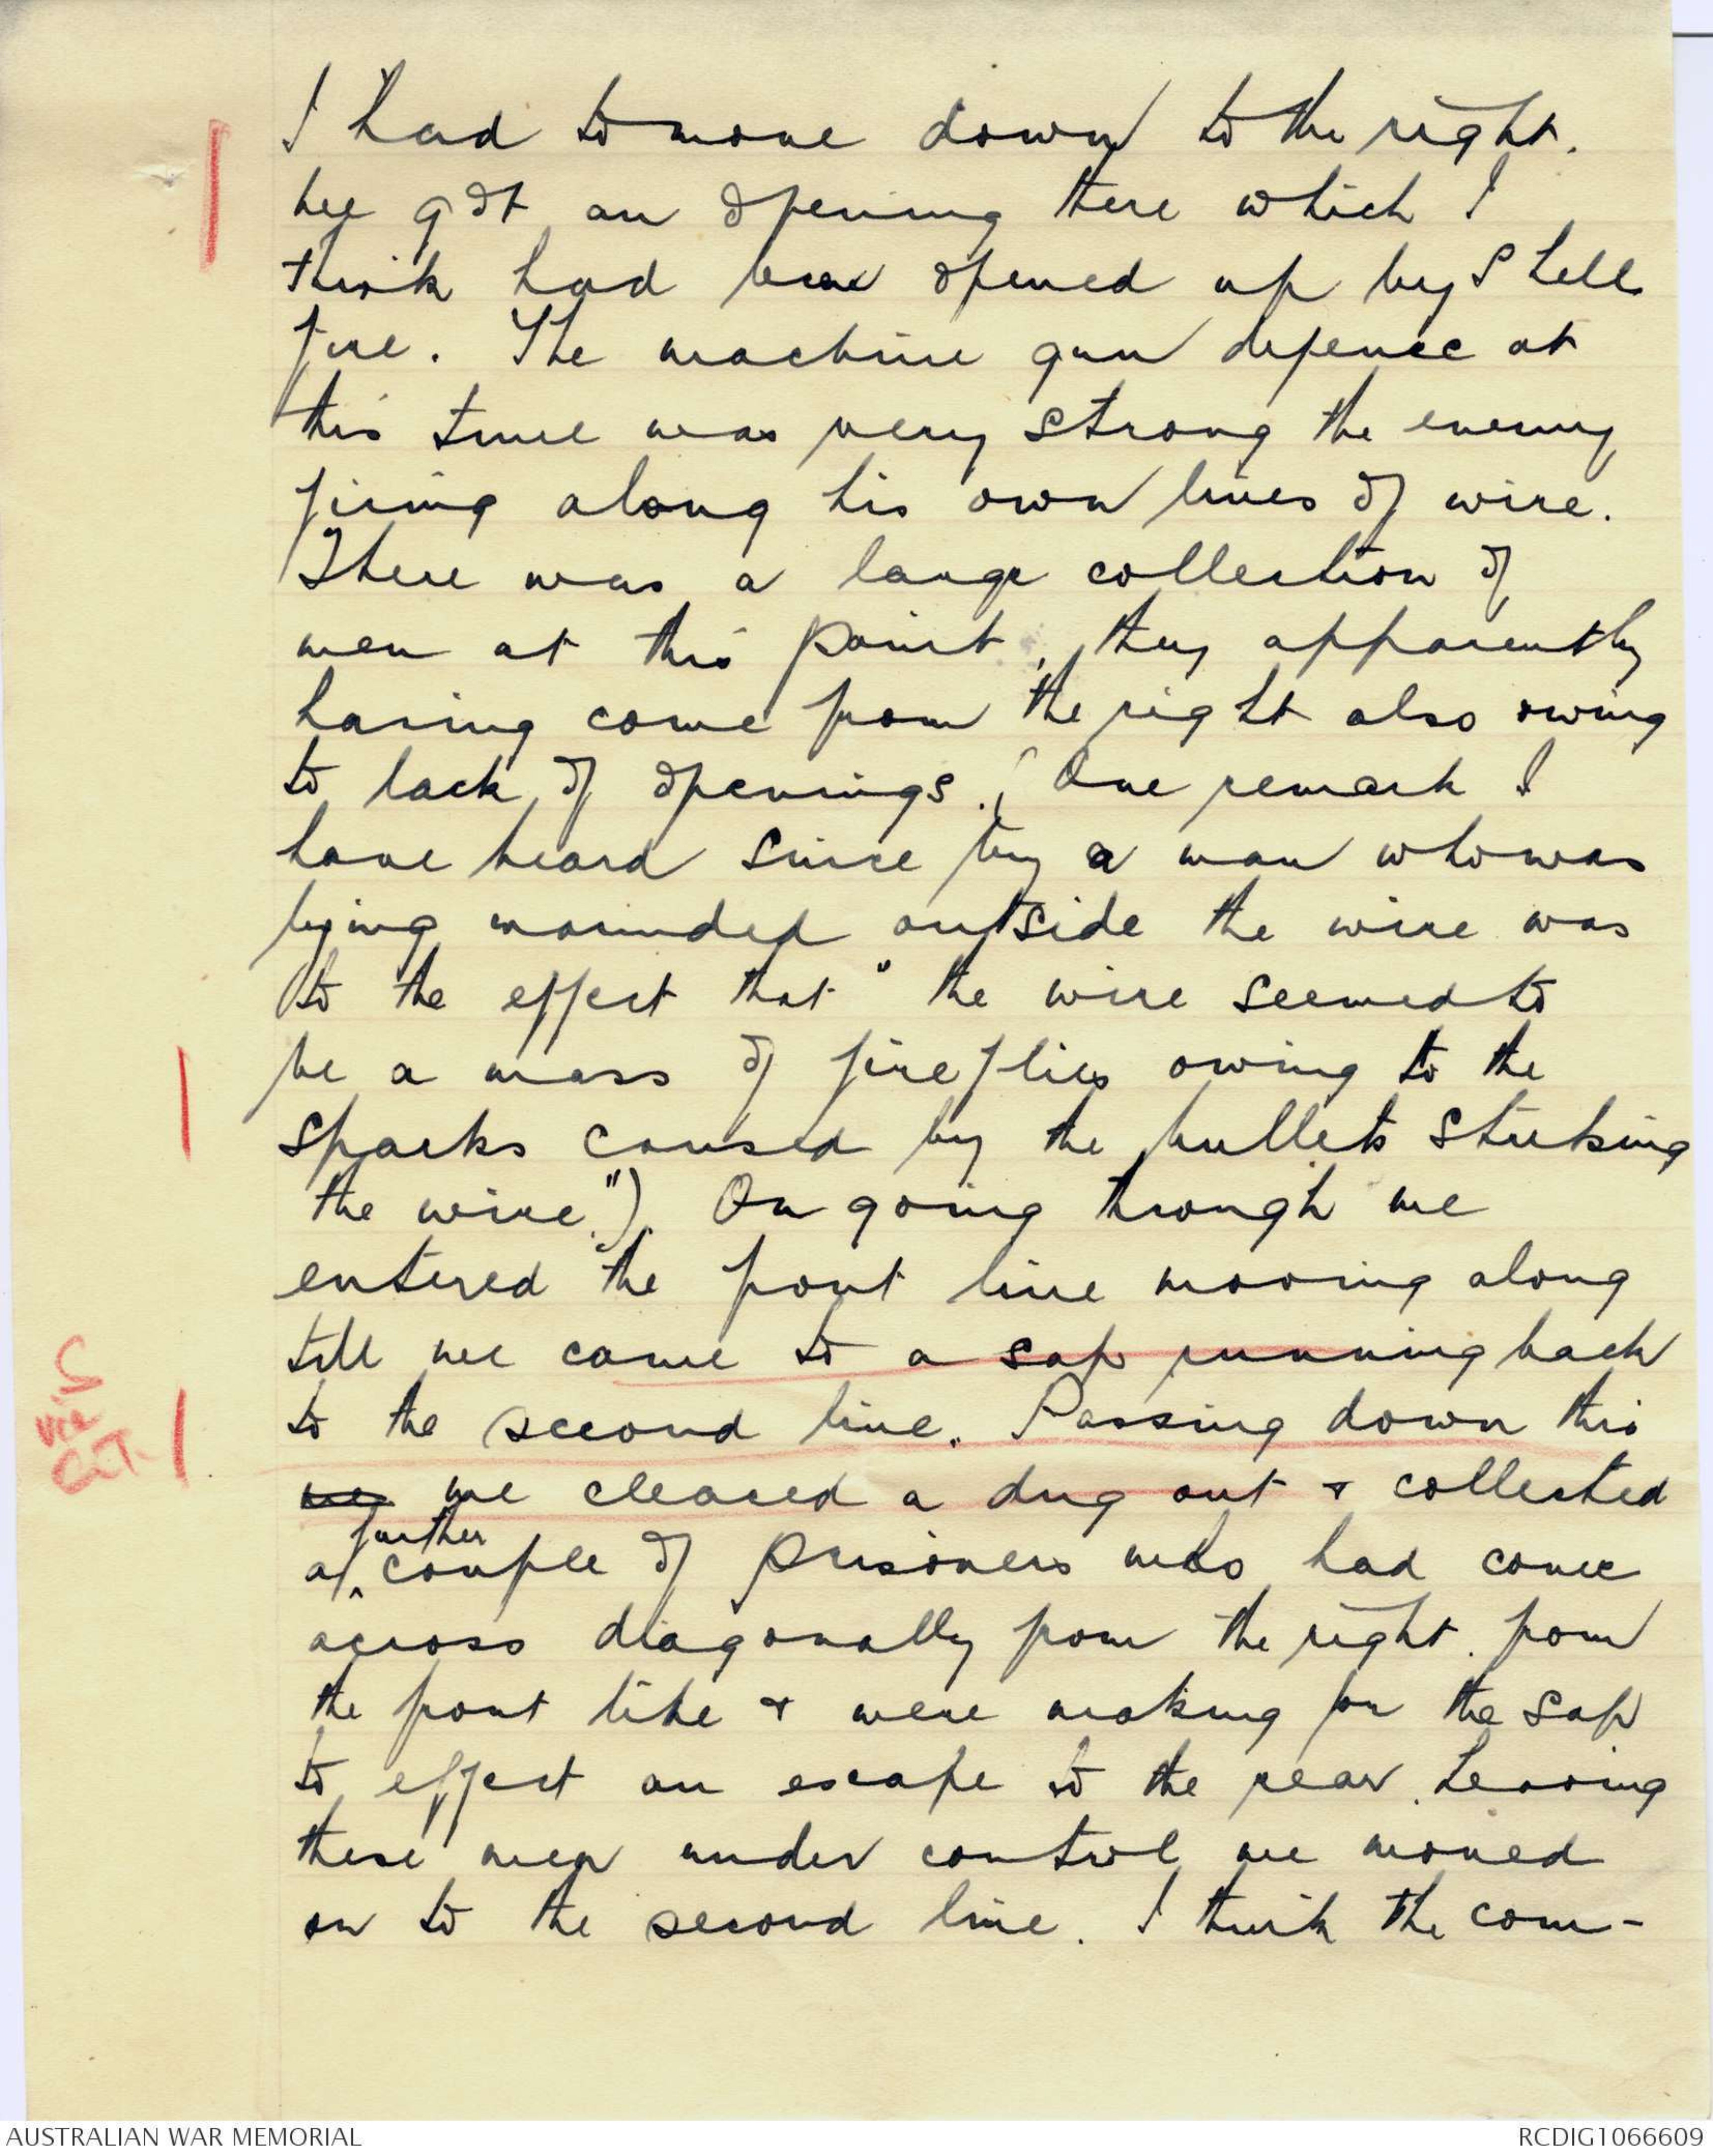 I had to move down to the right.
We got an opening there which I
think had been opened up by shell
fire. The machine gun defence at
this time was very strong the enemy
firing along his own lines of wire.
There was a large collection of
men at this point, they apparently
having come from the right also owing
to lack of openings. (One remark I
have heard since by a man who was
lying wounded outside the wire was
to the effect that "the wire seemed to
be a mass of fireflies owing to the
sparks caused by the bullets striking
the wire".) On going through we
entered the front line moving along
till we came to a sap running back
to the second line. Passing down this
we we cleared a dug out & collected
a further couple of prisoners who had come
across diagonally from the right from
the front like & were making for the sap
to effect an escape to the rear. Leaving
these men under control we moved
on to the second line. I think the com-
via
C.T.
AUSTRALIAN WAR MEMORIAL
RCDIG1066609